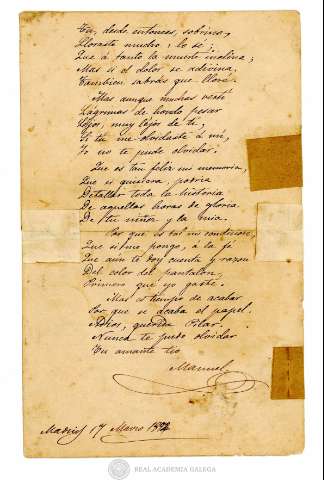 Tu, desde entonces, sobrina,
Lloraste mucho, lo se,
Que á tanto la muerte inclina;
Mas si el dolor se adivina,
Tambien sabrás que lloré.
Mas aunque muchas verti
Lágrimas de hondo pesar
Lejos, muy lejos de ti,
Si tu me olvidaste á mi,
Yo no te pude olvidar.
Que es tan feliz mi memoria,
Que si quisiera, podria
Detallar toda la historia
De aquellas horas de gloria
De tu niñez y la mia.
Por que es tal mi condicion,
Que si me pongo, á la fé
Que aún te doy cuenta y razon
Del color del pantalon,
Primero que yo gasté.
Mas es tiempo de acabar
Por que se acaba el papel.
Adios, querida Pilar
Nunca te puede olvidar
Tu amante tio
Manuel
Madrid 17 Marzo
REAL ACADEMIA GALEGA